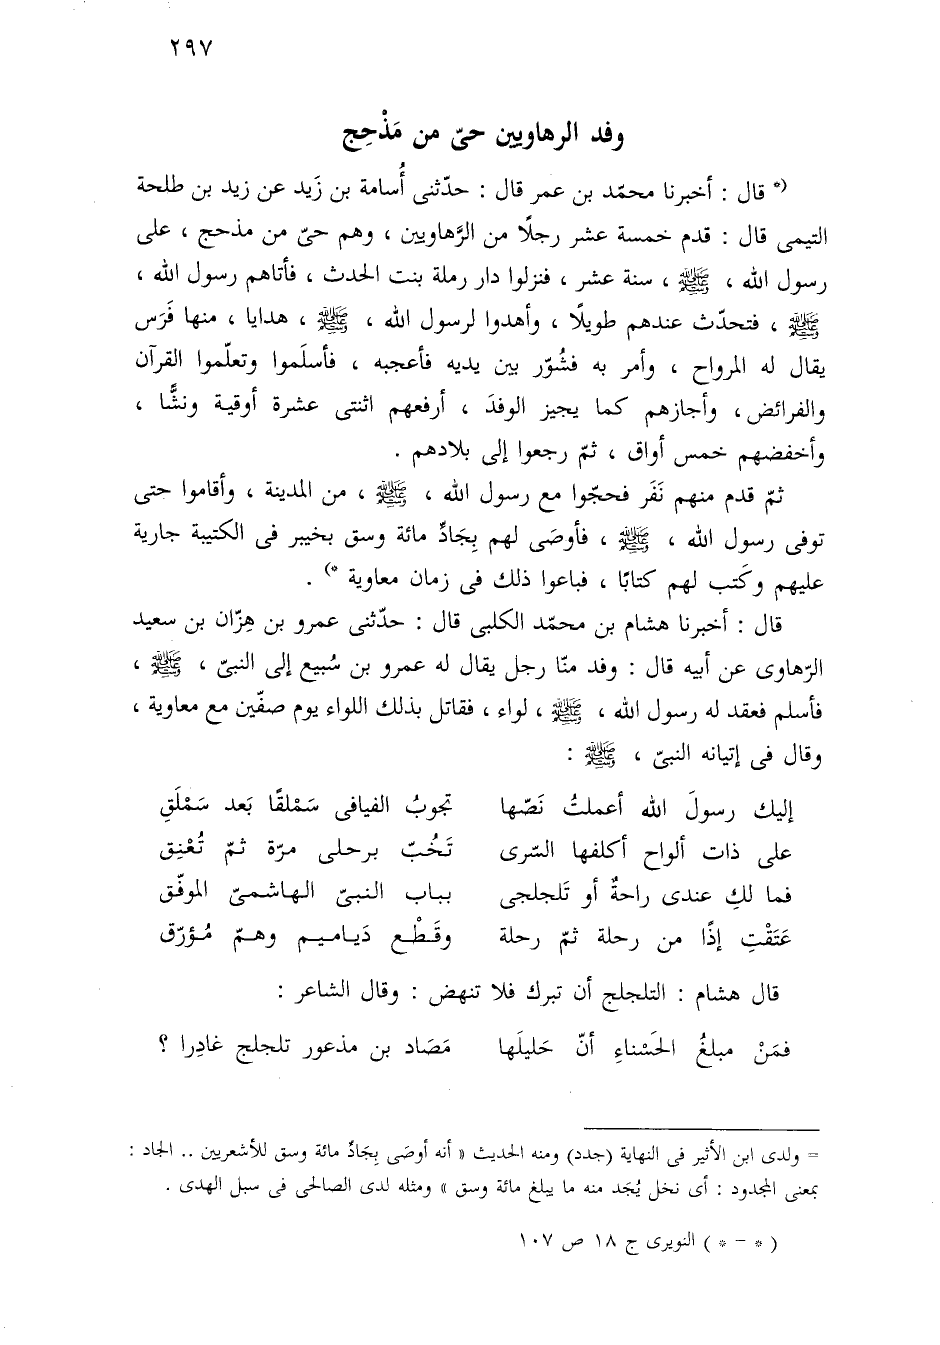 ٢٩٧
وفد الرهاويين حىّ من مَذْحِج
(* قال : أخبرنا محمّد بن عمر قال : حدّثنى أُسامة بن زَيد عن زيد بن طلحة
التيمى قال : قدم خمسة عشر رجلًا من الرَّهاويين ، وهم حىّ من مذحج ، على
رسول الله ، ﷺ ، سنة عشر ، فنزلوا دار رملة بنت الحدث ، فأتاهم رسول الله ،
ﷺ ، فتحدّث عندهم طويلًا ، وأهدوا لرسول الله ، ﷺ ، هدايا ، منها فَرَس
يقال له المرواح ، وأمر به فشُوّر بين يديه فأعجبه ، فأسلَموا وتعلّموا القرآن
والفرائض، وأجازهم كما يجيز الوفدَ ، أرفعهم اثنتى عشرة أوقية ونشًّا ،
وأخفضهم خمس أواق ، ثمّ رجعوا إلى بلادهم .
ثمّ قدم منهم نَفَر فحجّوا مع رسول الله ، ﷺ ، من المدينة ، وأقاموا حتى
توفى رسول الله ، ﷺ ، فأوصَى لهم بِجَادِّ مائة وسق بخيبر فى الكتيبة جارية
عليهم وكَتب لهم كتابًا ، فباعوا ذلك فى زمان معاوية *) .
قال : أخبرنا هشام بن محمّد الكلبى قال : حدّثنى عمرو بن هِزّان بن سعيد
الرّهاوى عن أبيه قال : وفد منّا رجل يقال له عمرو بن سُبيع إلى النبىّ ، ﷺ ،
فأسلم فعقد له رسول الله ، ﷺ ، لواء ، فقاتل بذلك اللواء يوم صفّين مع معاوية ،
وقال فى إتيانه النبىّ ، ﷺ :
إليك رسولَ الله أعملتُ نَصّها تجوبُ الفيافى سَمْلقًا بَعد سَمْلَقِ
على ذات ألواح أكلفها السّرى تَخُبّ برحلى مرّة ثمّ تُعْنِق
فما لكِ عندى راحةٌ أو تَلجلجى بباب النبىّ الهاشمىّ الموفّق
عَتَقْتِ إذًا من رحلة ثمّ رحلة وقَطْع دَياميم وهمّ مُؤرّق
قال هشام : التلجلج أن تبرك فلا تنهض : وقال الشاعر :
فمَنْ مبلغُ الحَسْناءِ أنّ حَليلَها مَصَاد بن مذعور تلجلج غادِرا ؟
= ولدى ابن الأثير فى النهاية (جدد) ومنه الحديث « أنه أوصَى بِجَادِّ مائة وسق للأشعريين .. الجاد :
بمعنى المجدود : أى نخل يُجَد منه ما يبلغ مائة وسق » ومثله لدى الصالحى فى سبل الهدى .
( * - * ) النويرى ج ١٨ ص ١٠٧